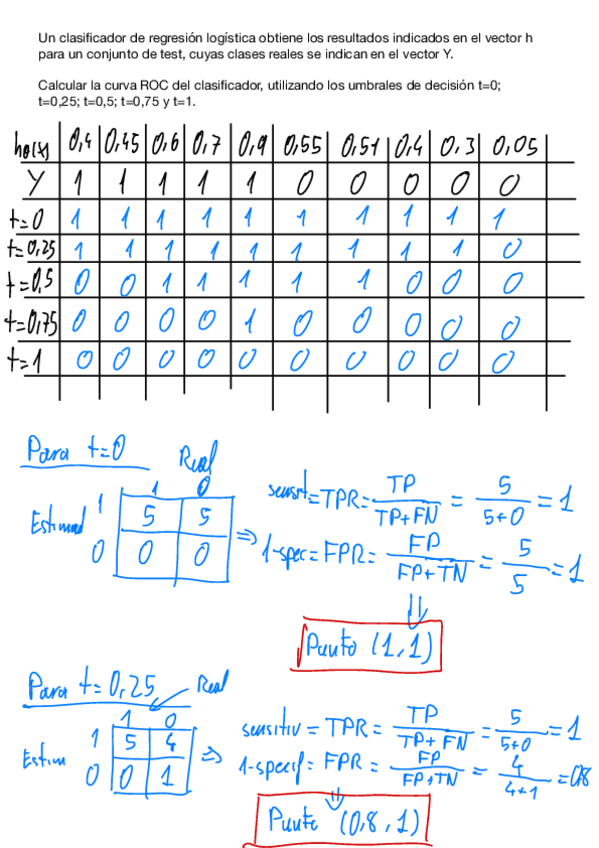 Un clasificador de regresión logística obtiene los resultados indicados en el vector h
para un conjunto de test, cuyas clases reales se indican en el vector Y.
Calcular la curva ROC del clasificador, utilizando los umbrales de decisión t=0;
t=0,25; t=0,5; t=0,75 y t=1.
hθ(x) 0,4 0,45 0,6 0,7 0,9 0,55 0,51 0,4 0,3 0,05
Y 1 1 1 1 1 0 0 0 0 0
t=0 1 1 1 1 1 1 1 1 1 1
t=0,25 1 1 1 1 1 1 1 1 1 0
t=0,5 0 0 1 1 1 1 1 0 0 0
t=0,75 0 0 0 0 1 0 0 0 0 0
t=1 0 0 0 0 0 0 0 0 0 0
Para t=0
Real
1 0
Estimad 1 5 5
0 0 0
⇒
sensit=TPR= TP/(TP+FN) = 5/(5+0) = 1
1-spec=FPR= FP/(FP+TN) = 5/5 = 1
⇓
Punto (1,1)
Para t=0,25
Real
1 0
Estim 1 5 4
0 0 1
⇒
sensitiv = TPR = TP/(TP+FN) = 5/(5+0) = 1
1-specif = FPR = FP/(FP+TN) = 4/(4+1) = 0,8
⇓
Punto (0,8,1)